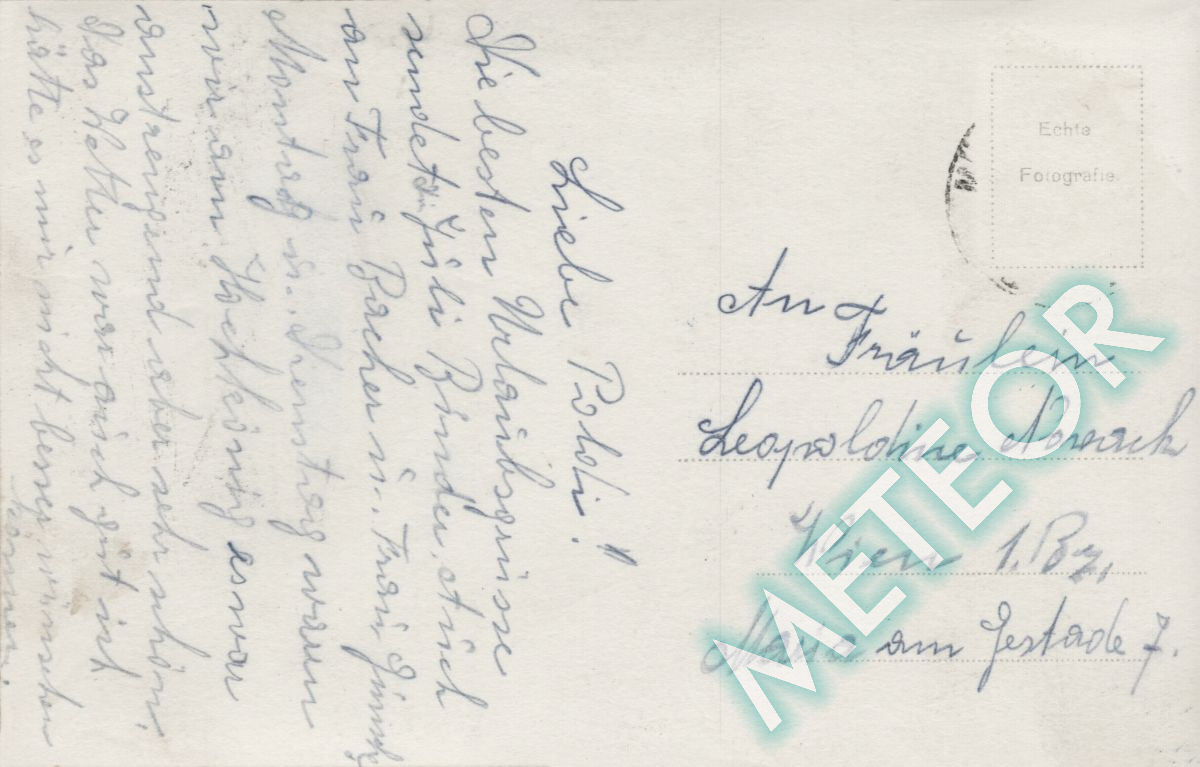 Liebe Poldi!
Die besten Urlaubsgrüsse
sendet dir Juli Binder. Auch
an Frau Bacher u. Frau
Montag u. Dienstag waren
wir am Hochkönig es war
anstrengend aber sehr schön.
Das Wetter war auch gut ich
hätte es mir nicht besser wünschen
können.
Echte
Fotografie
An
Fräulein
Leopoldine Nowack
Wien 1. Bz.
Maria am Gestade 7.
METEOR